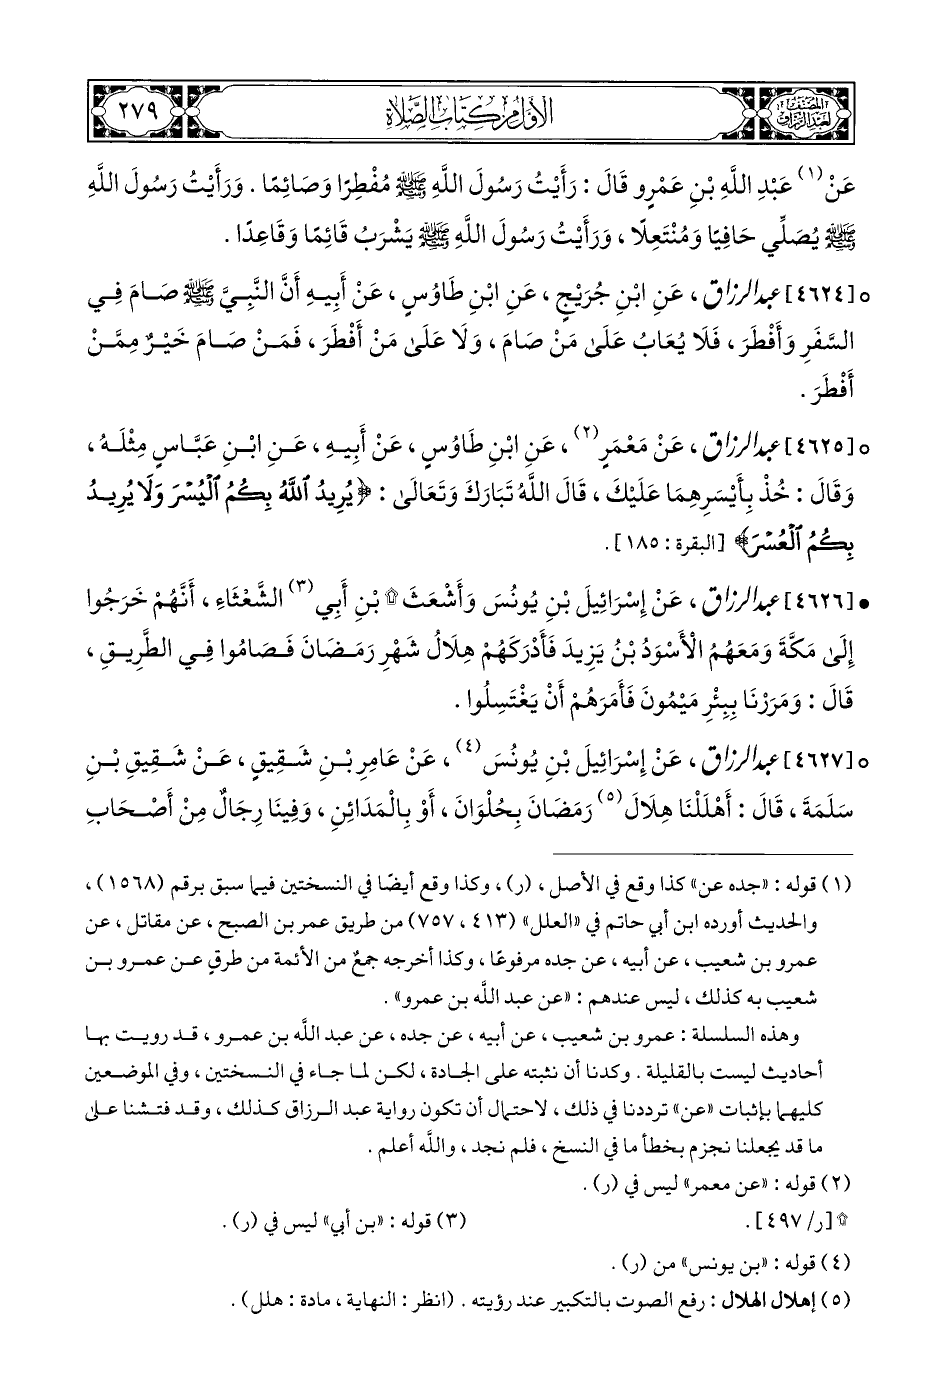 المصنف لعبد الرزاق
الأول من كتاب الصلاة
٢٧٩
عَنْ(١) عَبْدِ اللَّهِ بْنِ عَمْرٍو قَالَ : رَأَيْتُ رَسُولَ اللَّهِ ﷺ مُفْطِرًا وَصَائِمًا . وَرَأَيْتُ رَسُولَ اللَّهِ
ﷺ يُصَلِّي حَافِيًا وَمُنْتَعِلًا ، وَرَأَيْتُ رَسُولَ اللَّهِ ﷺ يَشْرَبُ قَائِمًا وَقَاعِدًا .
○ [٤٦٢٤] عبد الرزاق ، عَنِ ابْنِ جُرَيْجٍ ، عَنِ ابْنِ طَاوُسٍ ، عَنْ أَبِيهِ أَنَّ النَّبِيَّ ﷺ صَامَ فِي
السَّفَرِ وَأَفْطَرَ ، فَلَا يُعَابُ عَلَىٰ مَنْ صَامَ ، وَلَا عَلَىٰ مَنْ أَفْطَرَ ، فَمَنْ صَامَ خَيْرٌ مِمَّنْ
أَفْطَرَ .
○ [٤٦٢٥] عبد الرزاق ، عَنْ مَعْمَرٍ(٢) ، عَنِ ابْنِ طَاوُسٍ ، عَنْ أَبِيهِ ، عَنِ ابْنِ عَبَّاسٍ مِثْلَهُ ،
وَقَالَ : خُذْ بِأَيْسَرِهِمَا عَلَيْكَ ، قَالَ اللَّهُ تَبَارَكَ وَتَعَالَىٰ : ﴿يُرِيدُ ٱللَّهُ بِكُمُ ٱلْيُسْرَ وَلَا يُرِيدُ
بِكُمُ ٱلْعُسْرَ﴾ [البقرة : ١٨٥] .
• [٤٦٢٦] عبد الرزاق ، عَنْ إِسْرَائِيلَ بْنِ يُونُسَ وَأَشْعَثَ ۩ بْنِ أَبِي(٣) الشَّعْثَاءِ ، أَنَّهُمْ خَرَجُوا
إِلَىٰ مَكَّةَ وَمَعَهُمُ الْأَسْوَدُ بْنُ يَزِيدَ فَأَدْرَكَهُمْ هِلَالُ شَهْرِ رَمَضَانَ فَصَامُوا فِي الطَّرِيقِ ،
قَالَ : وَمَرَرْنَا بِبِئْرِ مَيْمُونَ فَأَمَرَهُمْ أَنْ يَغْتَسِلُوا .
○ [٤٦٢٧] عبد الرزاق ، عَنْ إِسْرَائِيلَ بْنِ يُونُسَ(٤) ، عَنْ عَامِرِ بْنِ شَقِيقٍ ، عَنْ شَقِيقِ بْنِ
سَلَمَةَ ، قَالَ : أَهْلَلْنَا هِلَالَ(٥) رَمَضَانَ بِحُلْوَانَ ، أَوْ بِالْمَدَائِنِ ، وَفِينَا رِجَالٌ مِنْ أَصْحَابِ
(١) قوله : «جده عن» كذا وقع في الأصل ، (ر) ، وكذا وقع أيضًا في النسختين فيما سبق برقم (١٥٦٨) ،
والحديث أورده ابن أبي حاتم في «العلل» (٤١٣ ، ٧٥٧) من طريق عمر بن الصبح ، عن مقاتل ، عن
عمرو بن شعيب ، عن أبيه ، عن جده مرفوعًا ، وكذا أخرجه جمعٌ من الأئمة من طرقٍ عن عمرو بن
شعيب به كذلك ، ليس عندهم : «عن عبد اللَّه بن عمرو» .
وهذه السلسلة : عمرو بن شعيب ، عن أبيه ، عن جده ، عن عبد اللَّه بن عمرو ، قد رويت بها
أحاديث ليست بالقليلة . وكدنا أن نثبته على الجادة ، لكن لما جاء في النسختين ، وفي الموضعين
كليهما بإثبات «عن» ترددنا في ذلك ، لاحتمال أن تكون رواية عبد الرزاق كذلك ، وقد فتشنا على
ما قد يجعلنا نجزم بخطأ ما في النسخ ، فلم نجد ، واللَّه أعلم .
(٢) قوله : «عن معمر» ليس في (ر) .
۩ [ر/ ٤٩٧] .
(٣) قوله : «بن أبي» ليس في (ر) .
(٤) قوله : «بن يونس» من (ر) .
(٥) إهلال الهلال : رفع الصوت بالتكبير عند رؤيته . (انظر : النهاية ، مادة : هلل) .